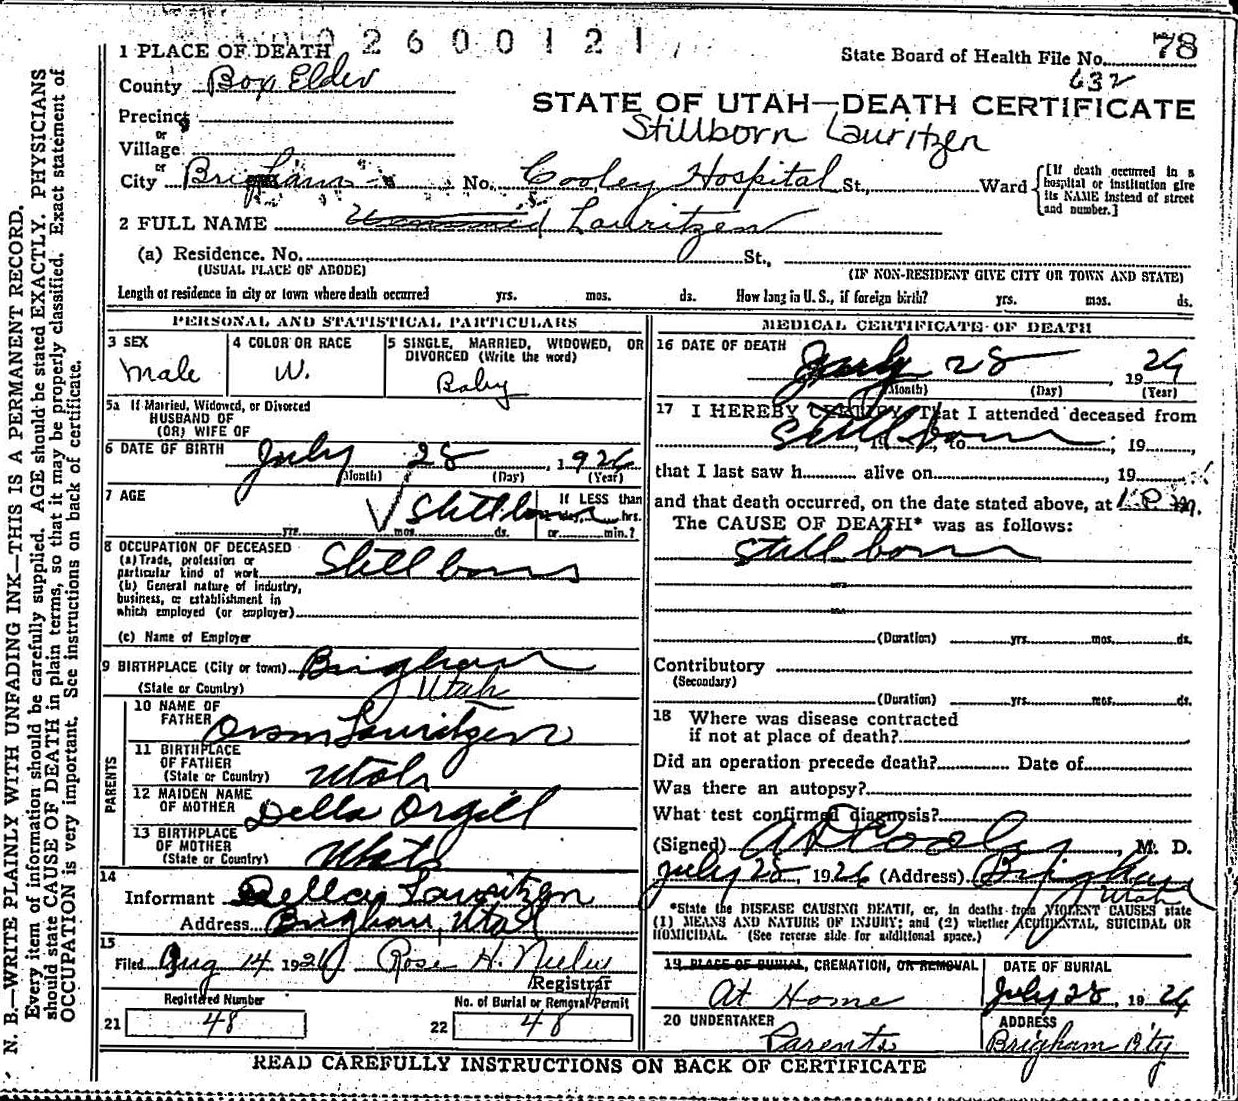 02600121
78
1 PLACE OF DEATH
State Board of Health File No.
632
County Box Elder
STATE OF UTAH—DEATH CERTIFICATE
Precinct
or
Stillborn Lauritzen
Village
or
City Brigham No. Cooley Hospital St., Ward
[If death occurred in a hospital or institution give its NAME instead of street and number.]
2 FULL NAME Unnamed Lauritzen
(a) Residence. No. St.,
(USUAL PLACE OF ABODE) (IF NON-RESIDENT GIVE CITY OR TOWN AND STATE)
Length of residence in city or town where death occurred yrs. mos. ds. How long in U. S., if foreign birth? yrs. mos. ds.
PERSONAL AND STATISTICAL PARTICULARS
3 SEX
male
4 COLOR OR RACE
W.
5 SINGLE, MARRIED, WIDOWED, OR
DIVORCED (Write the word)
Baby
5a If Married, Widowed, or Divorced
HUSBAND OF
(OR) WIFE OF
6 DATE OF BIRTH July 28, 1926
(Month) (Day) (Year)
7 AGE Stillborn
If LESS than
day, hrs.
yrs. mos. ds. or min.?
8 OCCUPATION OF DECEASED
(a) Trade, profession or
particular kind of work Stillborn
(b) General nature of industry,
business, or establishment in
which employed (or employer)
(c) Name of Employer
9 BIRTHPLACE (City or town) Brigham
(State or Country) Utah
PARENTS
10 NAME OF
FATHER Oram Lauritzen
11 BIRTHPLACE
OF FATHER
(State or Country) Utah
12 MAIDEN NAME
OF MOTHER Della Orgill
13 BIRTHPLACE
OF MOTHER
(State or Country) Utah
14
Informant Della Lauritzen
Address Brigham, Utah
15
Filed Aug 14 1926 Rose H.
Registrar
Registered Number No. of Burial or Removal Permit
21 48 22 48
MEDICAL CERTIFICATE OF DEATH
16 DATE OF DEATH
July 28, 1926
(Month) (Day) (Year)
17 I HEREBY CERTIFY, That I attended deceased from
Stillborn, 19 to ; 19
that I last saw h alive on, 19
and that death occurred, on the date stated above, at 1 P. m.
The CAUSE OF DEATH* was as follows:
Stillborn
(Duration) yrs. mos. ds.
Contributory
(Secondary)
(Duration) yrs. mos. ds.
18 Where was disease contracted
if not at place of death?
Did an operation precede death? Date of
Was there an autopsy?
What test confirmed diagnosis?
(Signed) A D Cooley, M. D.
July 28, 1926 (Address) Brigham
Utah
*State the DISEASE CAUSING DEATH, or, in deaths from VIOLENT CAUSES state
(1) MEANS AND NATURE OF INJURY; and (2) whether ACCIDENTAL, SUICIDAL OR
HOMICIDAL. (See reverse side for additional space.)
19 PLACE OF BURIAL, CREMATION, OR REMOVAL
At Home
DATE OF BURIAL
July 28, 1926
20 UNDERTAKER
Parents
ADDRESS
Brigham City
READ CAREFULLY INSTRUCTIONS ON BACK OF CERTIFICATE
N. B.—WRITE PLAINLY WITH UNFADING INK—THIS IS A PERMANENT RECORD.
Every item of information should be carefully supplied. AGE should be stated EXACTLY. PHYSICIANS
should state CAUSE OF DEATH in plain terms, so that it may be properly classified. Exact statement of
OCCUPATION is very important. See instructions on back of certificate.